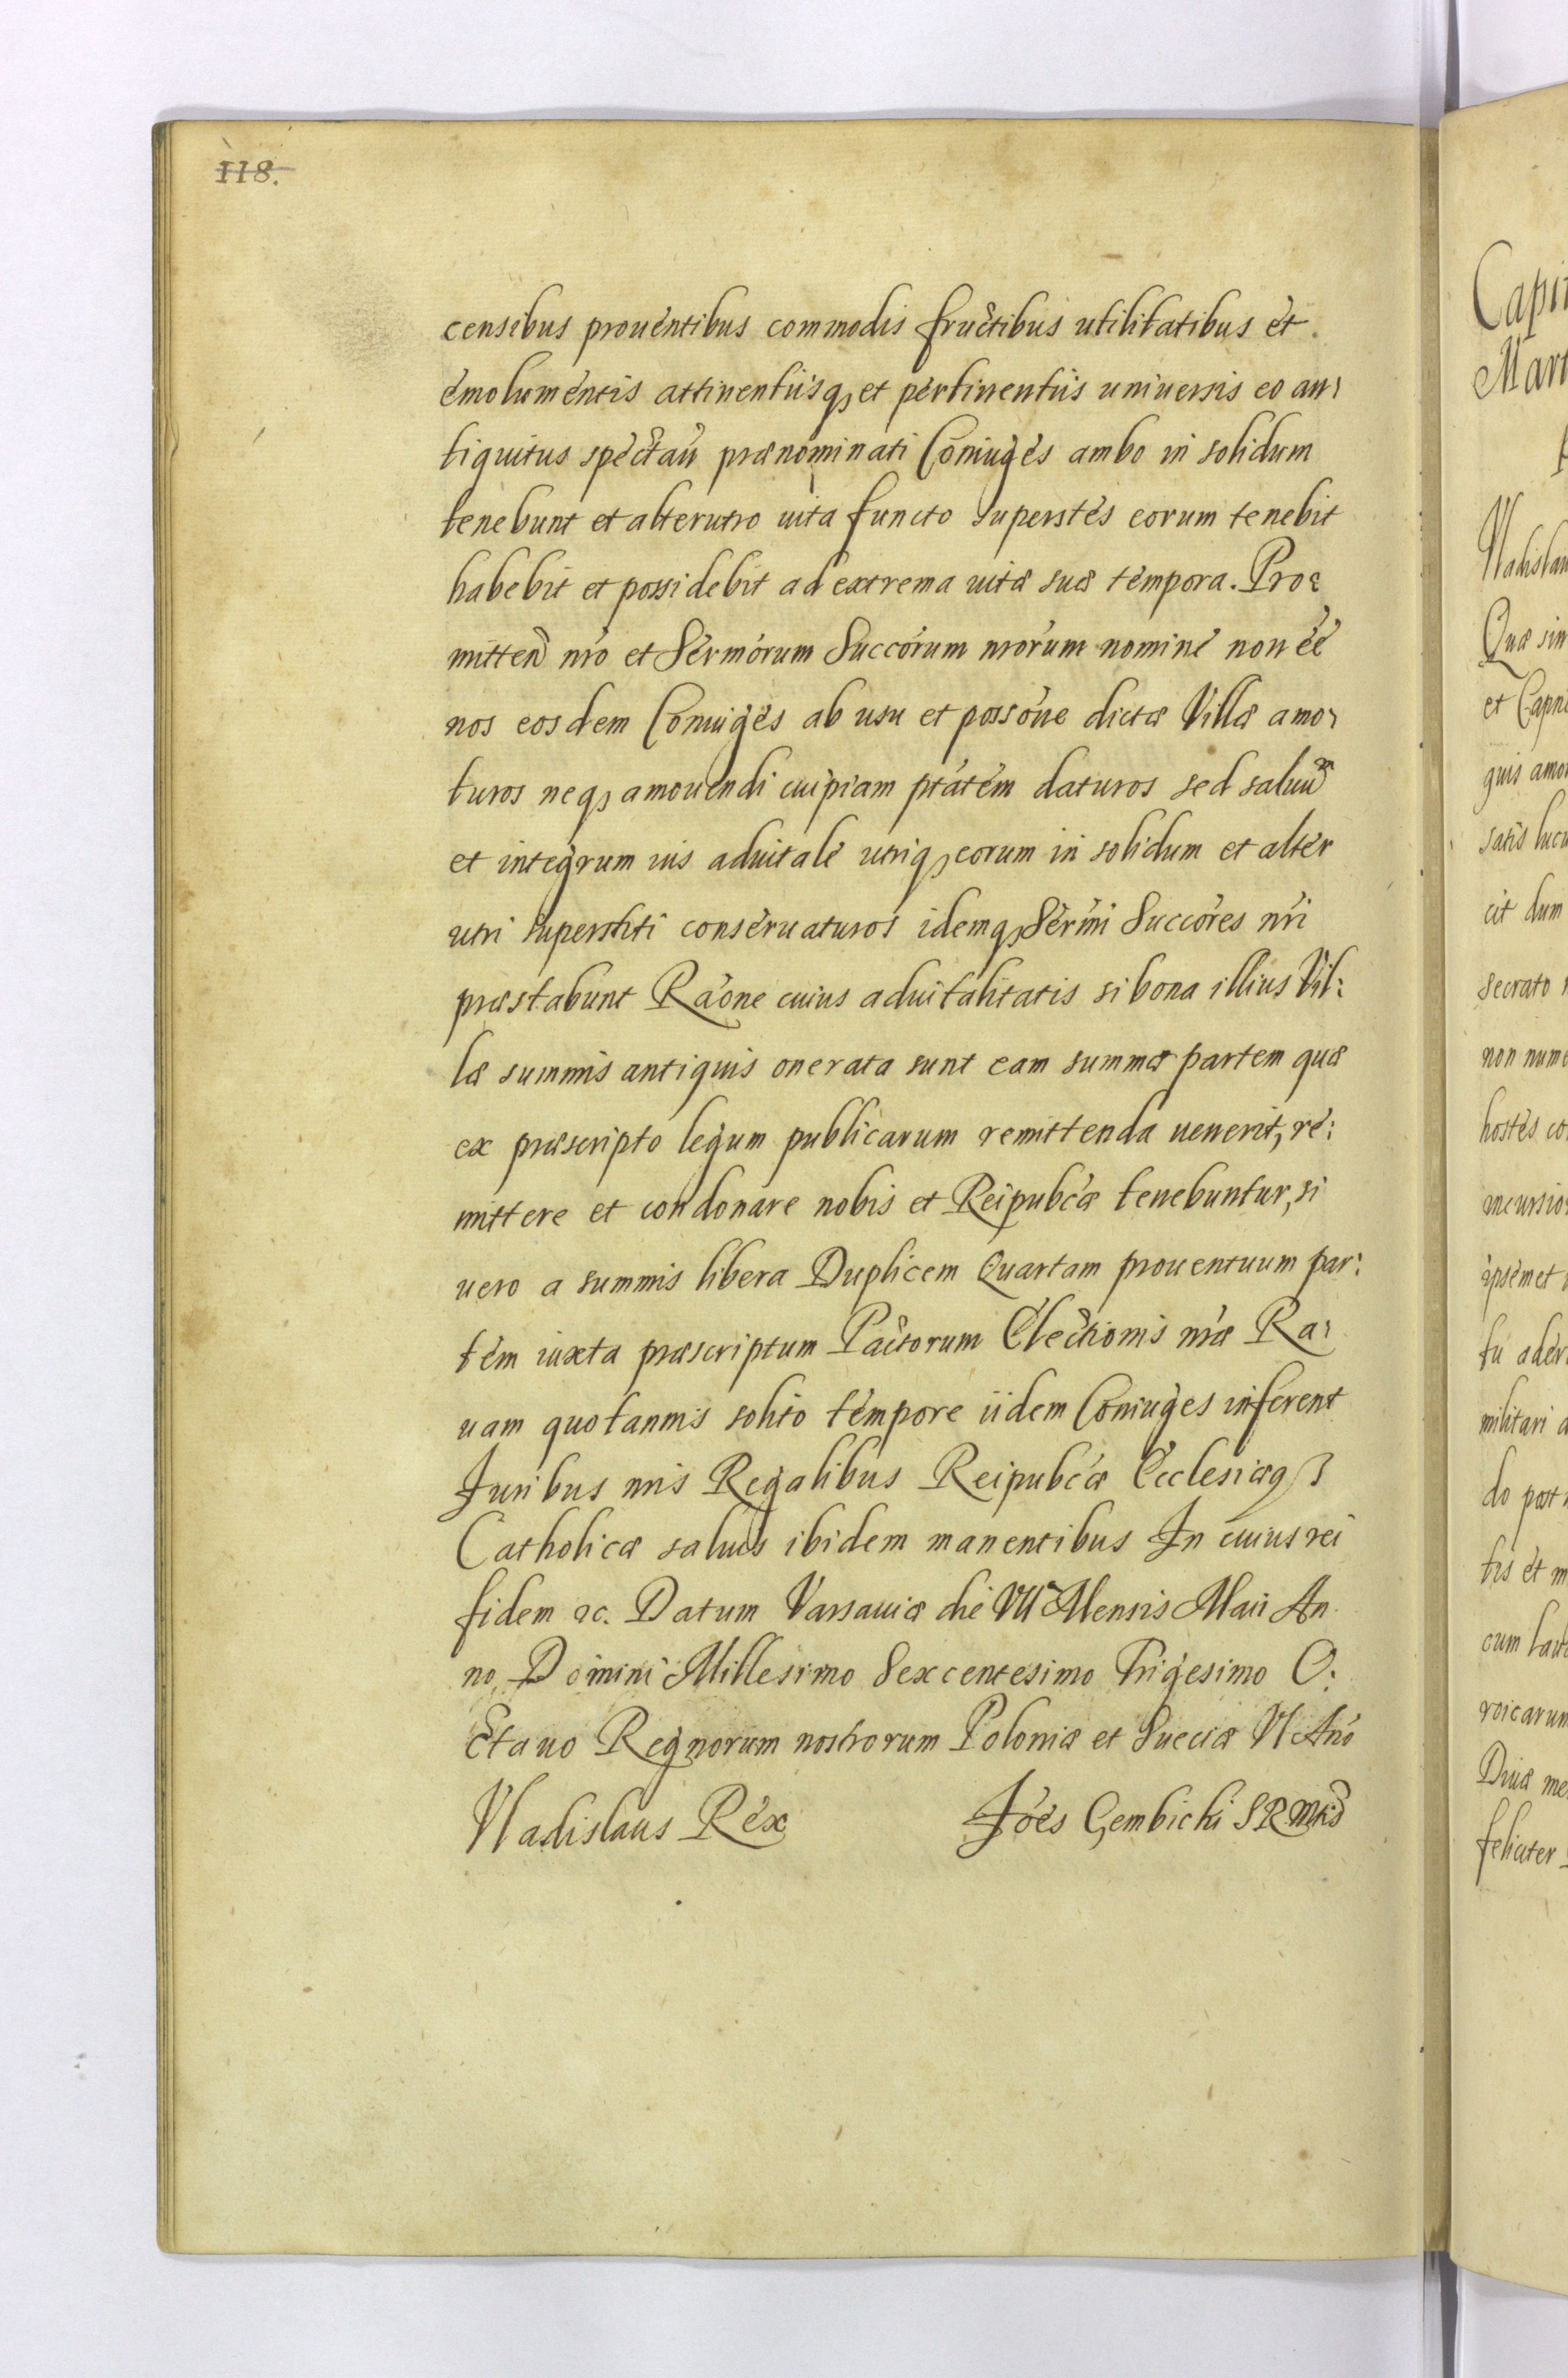 118.
censibus prouentibus commodis fructibus utilitatibus et
emolumentis attinentiisq₃ et pertinentiis uniuersis eo an:
tiquitus spectań prænominati Coniuges ambo in solidum
tenebunt et alterutro uita functo superstes eorum tenebit
habebit et possidebit ad extrema uitæ suæ tempora. Pro:
mitteń nŕo et Sermórum Succórum nŕorum nomine non éé
nos eosdem Coniuges ab usu et possóne dictæ Villæ amo:
turos neq₃ amouendi cuipiam ptátem daturos sed saluum
et integrum ius aduitale utriq₃ eorum in solidum et alter
utri superstiti conseruaturos idemq₃ Sermi Succóres nŕi
præstabunt Raóne cuius aduitalitatis si bona illius Vil:
læ summis antiquis onerata sunt eam summæ partem quæ
ex præscripto legum publicarum remittenda uenerit, re:
mittere et condonare nobis et Reipubcæ tenebuntur, si
uero a summis libera Duplicem Quartam prouentuum par:
tem iuxta præscriptum Pactorum Electionis nŕæ Ra:
uam quotannis solito tempore iidem Coniuges inferent
Juribus nŕis Regalibus Reipubcæ Ecclesiæq₃
Catholicæ saluis ibidem manentibus In cuius rei
fidem &c. Datum Varsauiæ die VII Mensis Maii An
no Domini Millesimo Sexcentesimo Trigesimo O:
ctauo Regnorum nostrorum Poloniæ et Sueciæ VI Anó
Vladislaus Rex Joés Gembicki SRMtis
Capi
Mart
Vladislau
Quæ sin
et Capi
quis amo
satis lucu
cit dum
secrato
non nume
hostes co
incursio
ipsemet
tu ader
militari a
do post
tis et m
cum lau
roicarum
Diuæ me
feliciter